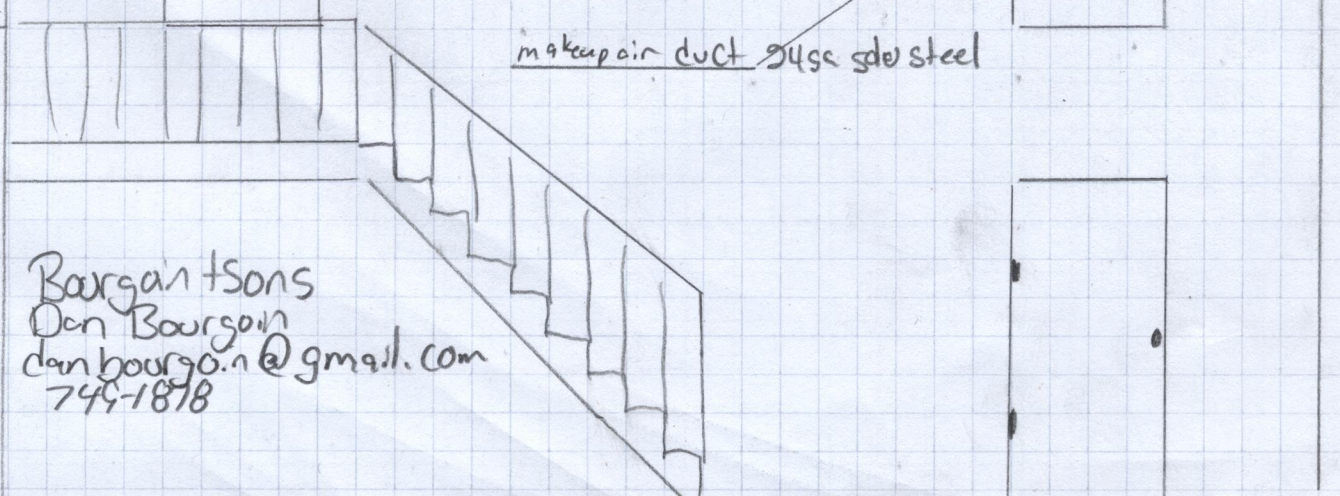 makeup air duct 24ga steel
Bourgoin + Sons
Dan Bourgoin
danbourgoin@gmail.com
749-1878